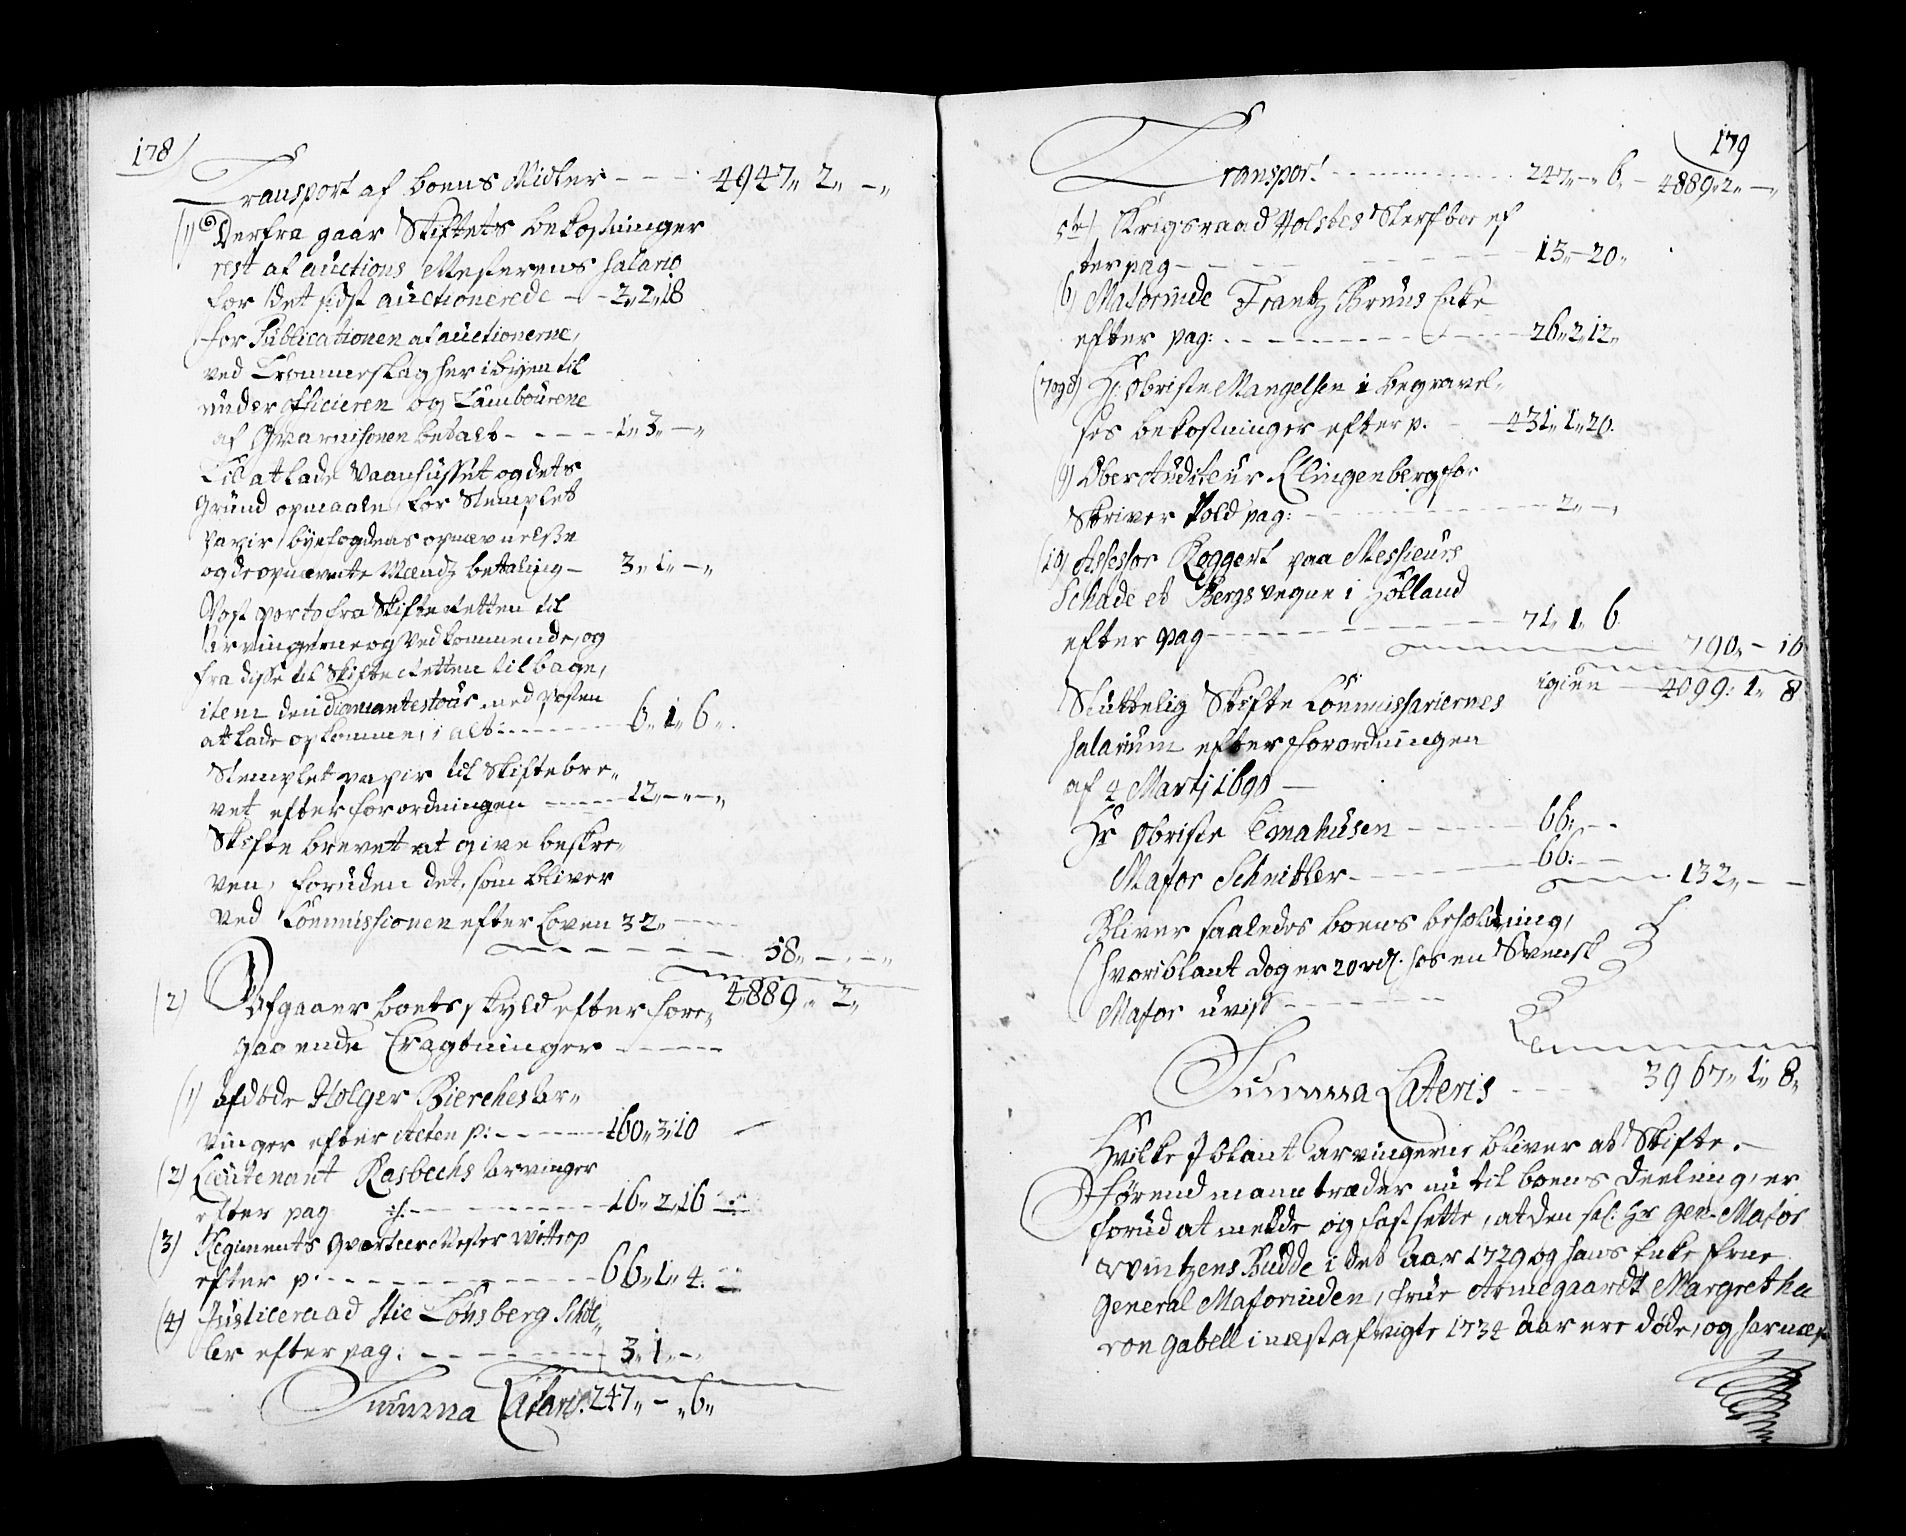 178
Transport af boens Midler - - - 4947„ 2„ -„
1) Derfra gaar Skiftets bekostninger
rest af auctions Mesterens Salario
for det sidst auctionerede - - 2„ 2„ 18
for Publicationen af auctionerne,
ved Trommeslag her i byen til
under officieren og Tambourene
af Gvarnisonen betalt - - - - 1„ 3„ -„
Til at lade Vaanhusset og dets
Grund opmaale, for Stemplet
Papir, byefogdens opnævnelsse
og de opnævnte Mænds betaling - 3„ 1„ -„
Post porto fra Skifte Retten til
arvingerne og Vedkommende, og
fra disse til Skifte Retten tilbage,
item den diamantes tour med Posten
at lade opkomme, i alt - - - - 6„ 1„ 6„
Stemplet papir til Skiftebre„
vet efter forordningen - - - - 12„ -„ -„
Skifte brevet at give beskre„
ven, foruden det, som bliver
ved Commissionen efter Loven 32„ - - -
58„ -„ -„
4889„ 2„
2) Afgaaer boets skyld efter fore„
gaaende Tragtninger - - - -
1) afdøde Holger Bierches ar„
vinger efter Acten p: - - - - 160„ 3„ 10
2) Lieutenant Rasbechs arvinger
efter pag - - - - 16„ 2„ 16
3) Regiments Qvarteer Mester Wittrop
efter p. - - - - 66„ 1„ 4.
4) Justiceraad Stie Tønsberg Schøl„
ler efter pag. - - - - 3„ 1„ -„
Summa Lateris. 247„ - „ 6„
179
Transport - - - - 247„ -„ 6„ - 4889„ 2„ -„
5te) Krigsraad Holstes Sterfboe ef
ter pag - - - - 13„ - 20„
6) Majorinde Frantz Bruns Enke
efter pag: - - - - 26„ 2„ 12„
7 og 8) Hr Obriste Mangelsen i begravel„
ses bekostninger efter p. - - 431„ 1„ 20.
9) Ober Auditeur Klingenberg for
Skriver Told pag: - - - - 2„ -„
10) Assessor Roggert paa Messieurs
Schade et Bergs vegne i Holland
efter pag - - - - 71„ 1„ 6.
790„ - 16
igien - 4099: 1„ 8
Sluttelig Skifte Commissariernes
Salarium efter forordningen
af 4 Martj 1690 -
Hr Obriste Emahusen - - - - 66: - -
Major Schnitler - - - - 66: - -
132„ - -
Bliver saaledes boens beholdning,
(hvoriblant dog er 20 rdl. hos en Svensk
Major uvist - - - -
Summa Lateris - - - 3967„ 1„ 8„
Hvilke Iblant arvingerne bliver at Skifte. -
Førend mann træder nu til boens Deeling, er
forud at melde og fastsette, at den sal: Hr Gen. Major
Vintzens Budde i det Aar 1729 og hans Enke Frue
General Majorinden, Frue Armegaardt Margretha
von Gabell i næst afvigte 1734 Aar ere døde, og har